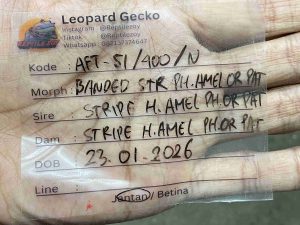 Leopard Gecko
Instagram @Reptilezoy
Tiktok @Reptilezoy
Whatsapp : 082137374647
Kode : AFT-51/400/N
Morph : BANDED STR PH. AMEL OR PAT
Sire : STRIPE H. AMEL PH. OR PAT
Dam : STRIPE H. AMEL PH. OR PAT
DOB : 23.01.2026
Line :
Jantan / Betina